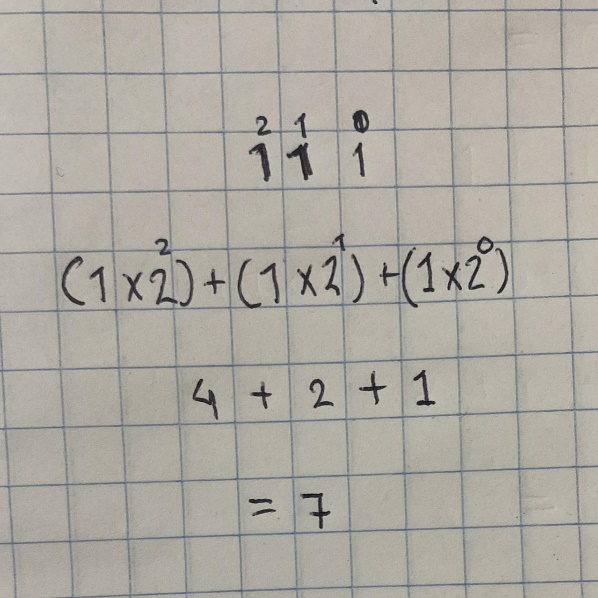 2 1 0
1 1 1
(1×2²)+(1×2¹)+(1×2⁰)
4 + 2 + 1
= 7